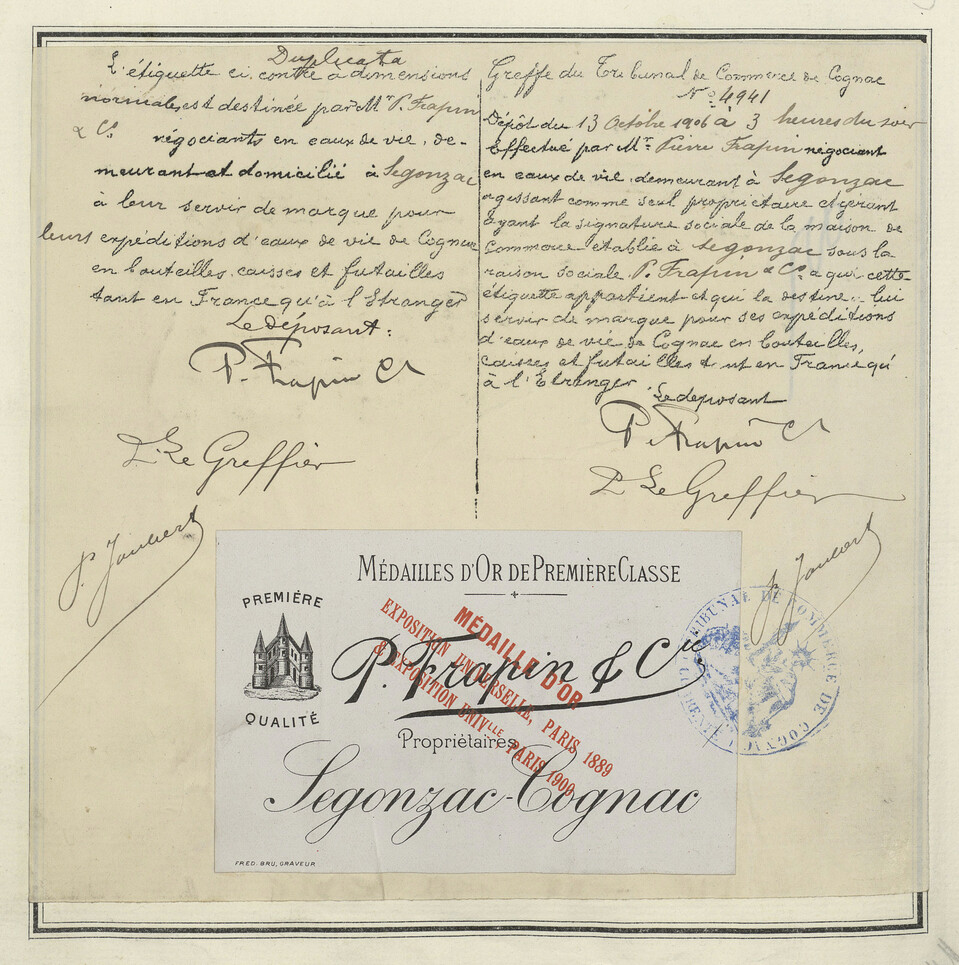 Duplicata
L'étiquette ci contre à dimensions
normales est destinée par Mr. P. Frapin
& Cie.
négociants en eaux de vie, de-
meurant et domicilié à Segonzac
à leur servir de marque pour
leurs expéditions d'eaux de vie de Cognac
en bouteilles, caisses et futailles
tant en France qu'à l'Etranger
Le déposant:
P. Frapin Cie
P. Le Greffier
P. Joubert
Greffe du Tribunal de Commerce de Cognac
No. 4941
Dépôt du 13 Octobre 1906 à 3 heures du soir
Effectué par Mr. Pierre Frapin négociant
en eaux de vie, demeurant à Segonzac
agissant comme seul propriétaire et gérant
ayant la signature sociale de la maison de
Commerce établie à Segonzac sous la
raison sociale P. Frapin & Cie. a qui cette
étiquette appartient et qui la destine à lui
servir de marque pour ses expéditions
d'eaux de vie de Cognac en bouteilles,
caisses et futailles tant en France qu'
à l'Etranger
Le déposant
P. Frapin Cie
P. Le Greffier
P. Joubert
MÉDAILLES D'OR DE PREMIÈRE CLASSE
PREMIÈRE
QUALITÉ
MÉDAILLE D'OR
EXPOSITION UNIVERSELLE, PARIS 1889
& EXPOSITION UNIVlle PARIS 1900
P. Frapin & Cie
Propriétaires
Segonzac-Cognac
FRED. BRU, GRAVEUR
TRIBUNAL DE COMMERCE DE COGNAC